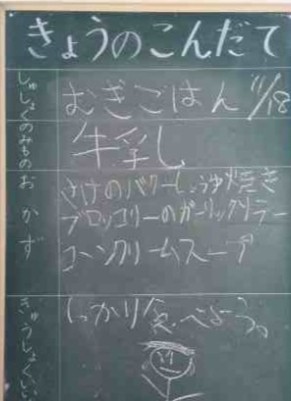 きょうのこんだて
しゅしょく むぎごはん 11/18
のみもの 牛乳
おかず さけのバターしょうゆ焼き
ブロッコリーのガーリックソテー
コーンクリームスープ
きゅうしょくいいん しっかり食べよう。